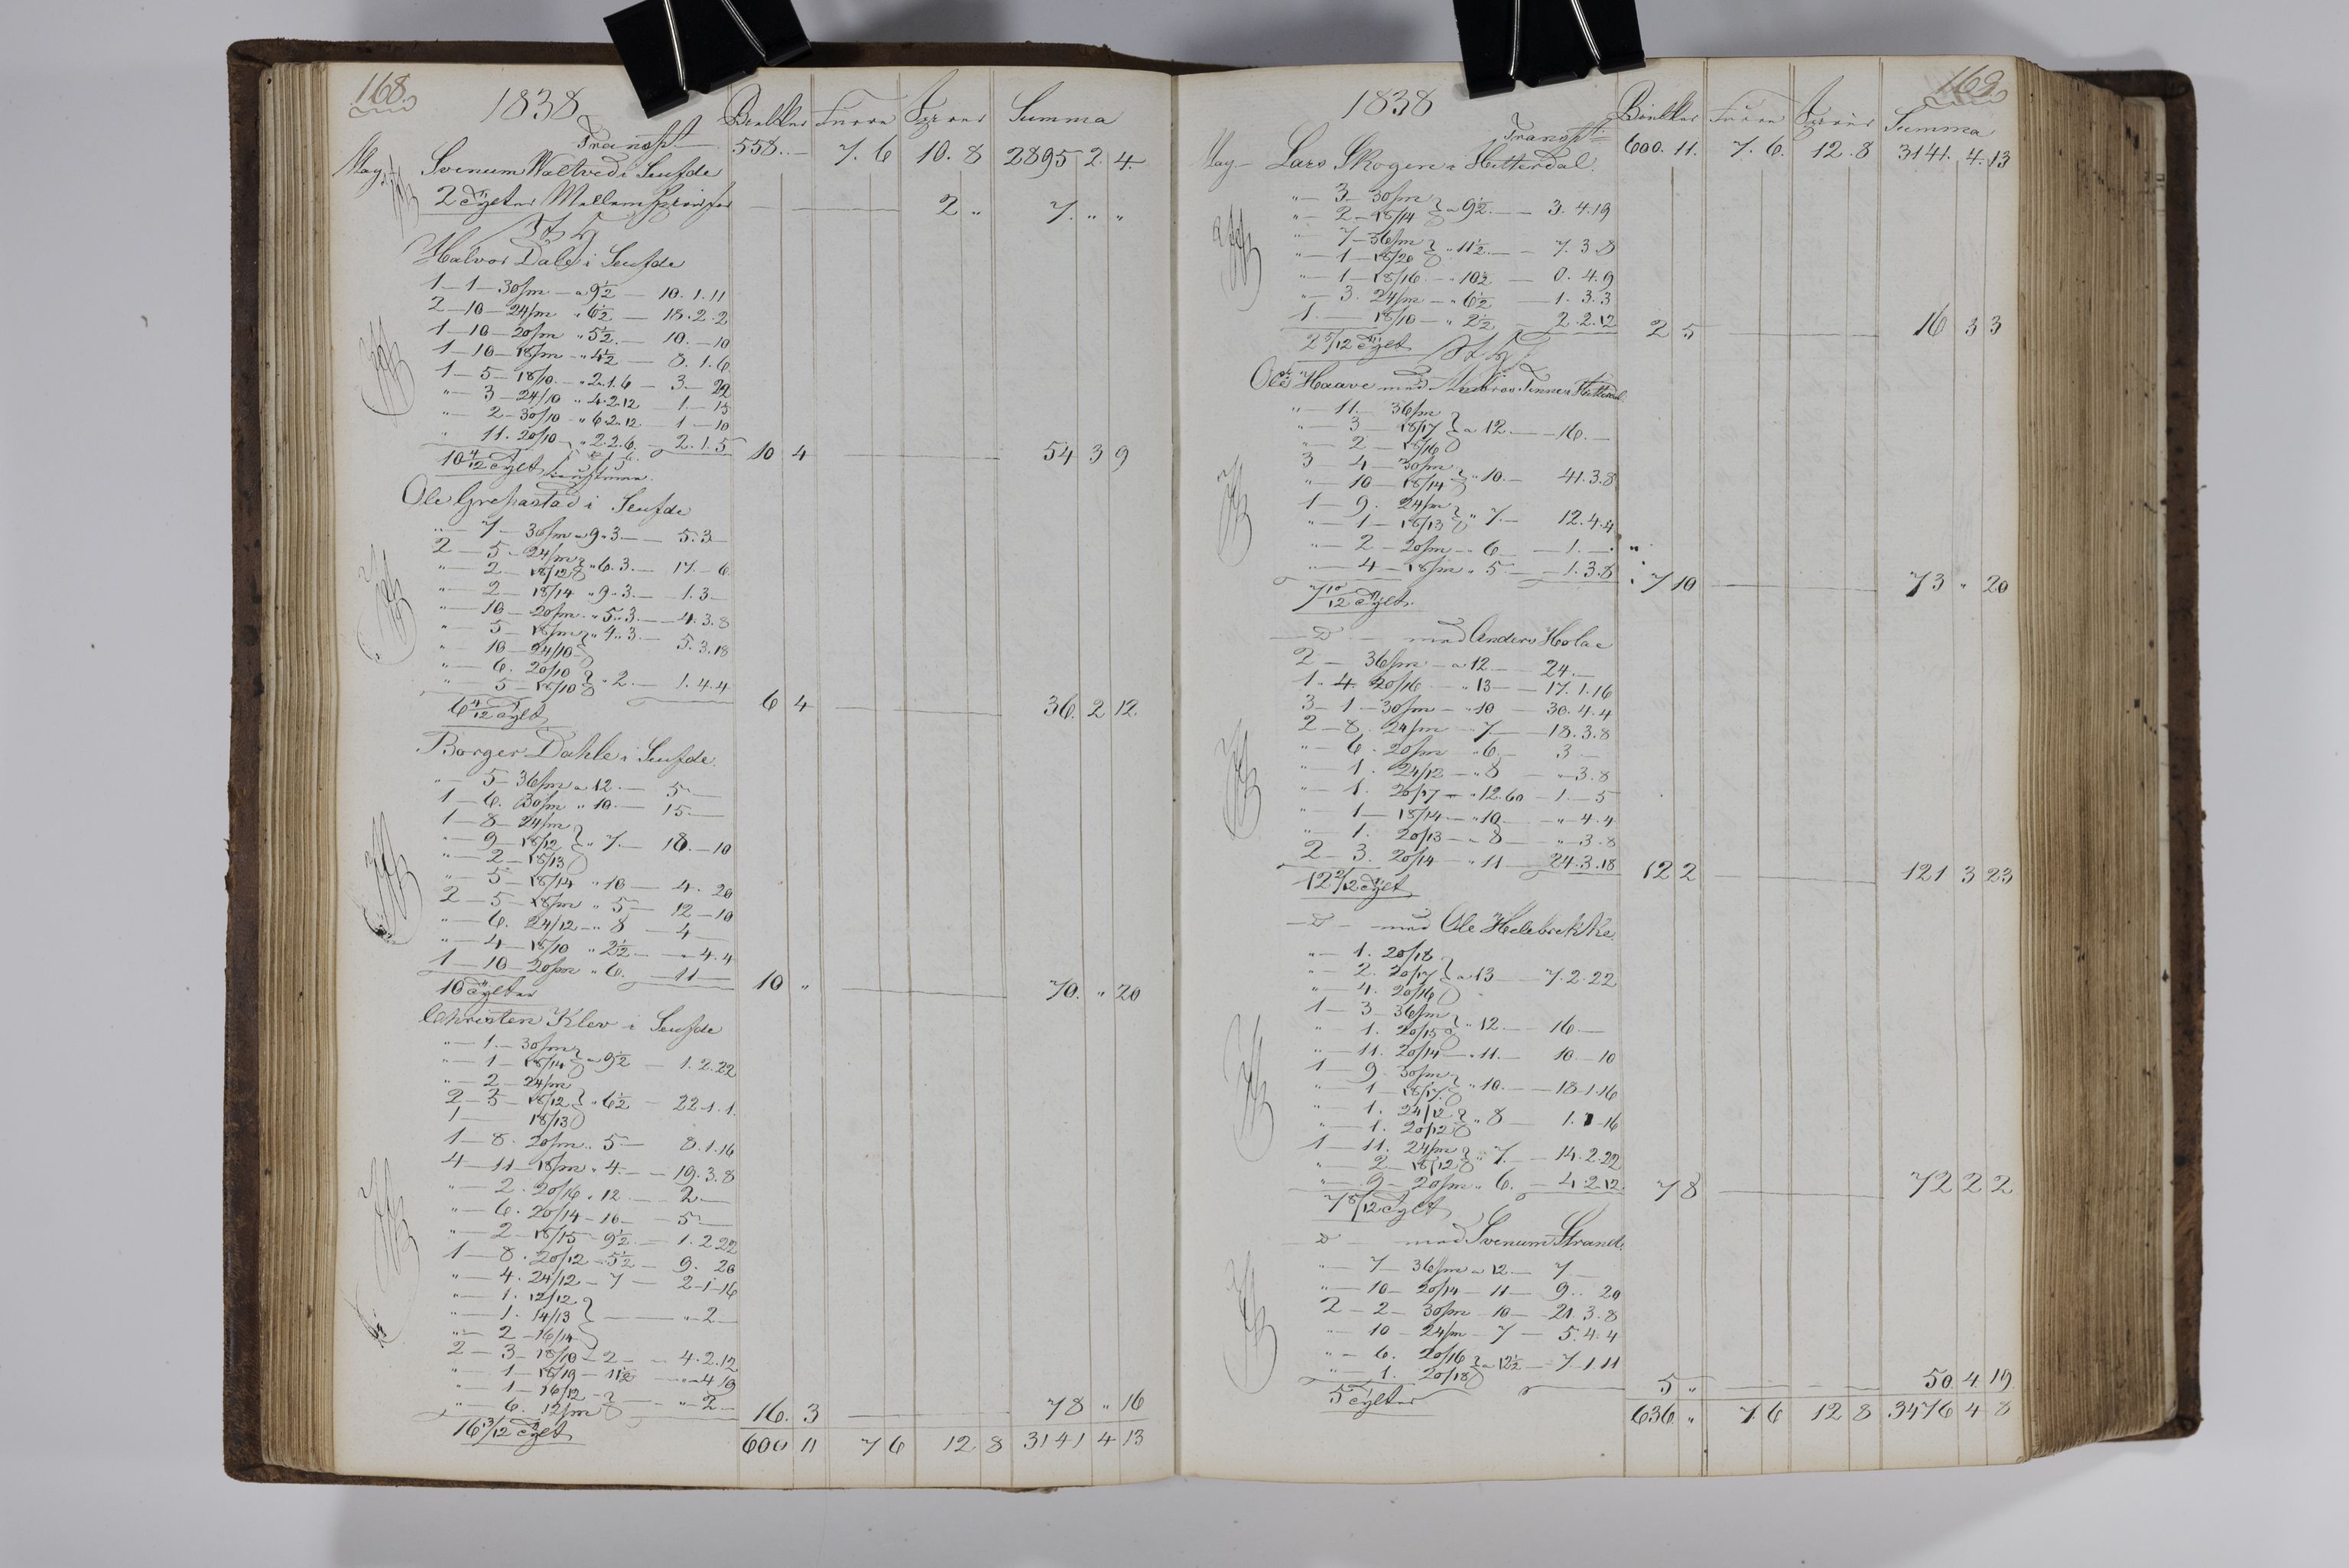 168
1838
Transpt. 558 „ — 7. 6 10. 8 2895 2. 4.
Bielker Furre Summa
May Svenum Waltved i Seufde
2 Tylter Mellem — 2 „ 7. „ „
Halvor Dale i Seufde
1–1–30/m – a 9½ — 10. 1. 11
2–10–24/m „ 6½ — 18. 2. 2
1–10–20/m „ 5½ — 10. – 10
1–10–18/m „ 4½ — 8. 1. 6
1–5–18/10 – „ 2. 1. 6 — 3 – 22
„ – 3 – 24/10 „ 4. 2. 12 — 1. – 15
„ – 2 – 30/10 „ 6. 2. 12 1 – 10
„ 11. 20/10 „ 2. 2. 6 – 2. 1. 5 10 4 54 3 9
10 4/12 Tylt
Ole Grepastad i Seufde
„ – 7 – 30/m a 9. 3 — 5. 3 –
2 – 5 – 24/m
„ – 2 – 18/12 } „ 6. 3. — 17. – 6
„ – 2 – 18/14 „ 9. 3. — 1. 3 –
„ – 10 – 20/m „ 5. 3. — 4. 3. 8
„ – 5 – 18/m „ 4. 3 —
„ 10 – 24/10 } 5. 3. 18
„ – 6. 20/10
„ – 5 – 18/10 } „ 2. — 1. 4. 4 6 4 36. 2 12.
6 4/12 Tylt
Borger Dahle i Seufde
„ – 5 – 36/m a 12. — 5 —
1 – 6. 30/m „ 10. — 15. —
1 – 8 – 24/m
„ – 9 – 18/12 } „ 7. — 18. – 10
„ – 2 – 18/13
„ – 5 – 18/14 „ 10 — 4. 20
2 – 5 – 18/m „ 5 — 12 – 10
„ – 6. 24/12 – „ 8 — 4 —
„ – 4 – 18/10 „ 2½ — „ 4. 4
1 – 10 – 20/m „ 6. — 11 — 10 „ 70. „ 20
10 Tylter
Christen Klev i Seufde
„ – 1. – 30/m
„ – 1 – 18/14 } a 9½ — 1. 2. 22
„ – 2 – 24/m
2 – 3 – 18/12 } „ 6½ — 22. 1. 1.
1 — 18/13
1 – 8. 20/m „ 5 — 8. 1. 16
4 – 11 – 18/m „ 4. — 19. 3. 8
„ – 2. 20/16 „ 12. — 2 —
„ – 6. 20/14 – 10 — 5 —
„ – 2 – 18/15 – 9½ — 1. 2. 22
1 – 8. 20/12 – 5½ — 9. 20
„ – 4. 24/12 – 7 — 2 – 1 – 16
„ – 1. 12/12
„ – 1. 14/13 } — „ 2 —
„ – 2 – 16/14
2 – 3 – 18/10 – 2 — 4. 2. 12
„ – 1 – 18/19 – 11½ — „ 4 19
„ – 1 – 16/12
„ – 6. 12/m } — „ 2 – 16. 3 78 „ 16
16 3/12 Tylt
600 11 7 6 12 8 3141 4 13
169
1838
Bielker Furre Summa
Transpt. 600. 11. 7. 6. 12. 8 3141. 4. 13
May – Lars Skogen i Hitterdal.
„ – 3 – 30/m
„ – 2 – 18/14 } a 9½ — 3. 4. 19
„ – 7 – 36/m
„ – 1 – 18/20 } „ 11½ — 7. 3. 8
„ – 1 – 18/16 – „ 10½ — 0. 4. 9
„ – 3. 24/m – „ 6½ — 1. 3. 3
1. — 18/10 – „ 2½ — 2. 2. 12 2 5 16 3 3
2 5/12 Tylt
Ole Haave med Hitterdal
„ – 11. 36/m
„ – 3 – 18/17 } a 12. — 16. —
„ – 2 – 18/16
3 – 4 – 30/m
„ – 10 – 18/14 } „ 10. — 41. 3. 8
1 – 9. 24/m
„ – 1 – 18/13 } „ 7. — 12. 4. 4
„ – 2 – 20/m – „ 6 — 1. —
„ – 4 – 18/m „ 5 — 1. 3. 8 7 10 73 „ 20
7 10/12 Tylt.
— D — med Anders Holae
2 – 36/m – a 12 — 24. —
1. 4. 20/16 – „ 13 — 17. 1. 16
3 – 1 – 30/m – „ 10 — 30. 4. 4
2 – 8. 24/m – 7. — 18. 3. 8
„ – 6. 20/m „ 6. — 3 —
„ – 1. 24/12 – „ 8 — „ 3. 8
„ – 1. 20/17 – „ 12. 60 – 1. – 5
„ – 1 – 18/14 – „ 10. — „ 4. 4
„ – 1. 20/13 – „ 8 — „ 3. 8
2 – 3. 20/14 – „ 11 — 24. 3. 18 12 2 121 3 23
12 2/12 Tylt
— D – med Ole Helebrekke
„ – 1. 20/18
„ – 2. 20/17 } a 13 — 7. 2. 22
„ – 4. 20/16
1 – 3 – 36/m
„ 1. 20/15 } „ 12. — 16. —
„ – 11. 20/14 – „ 11. — 10 – 10
1 – 9. 30/m
„ – 1 – 18/17 } „ 10. — 18 – 1. 16
„ – 1. 24/12
„ – 1. 20/12 } „ 8 — 1. 1 – 16
1 – 11. 24/m
„ – 2 – 18/12 } „ 7. — 14. 2. 22
„ – 9 – 20/m „ 6. — 4. 2. 12. 7 8 72 2 2
7 8/12 Tylt
— D — med Svenum Strand.
„ – 7 – 36/m a 12. — 7 —
„ – 10 – 20/14 – 11 — 9. . 20
2 – 2 – 30/m – 10 — 21. 3. 8
„ – 10 – 24/m – 7 — 5. 4. 4
„ – 6. 20/16
„ – 1. 20/18 } a 12½ — 7. 1. 11 5 „ 50. 4. 19.
5 Tylter
636 „ 7. 6 12 8 3476 4 8